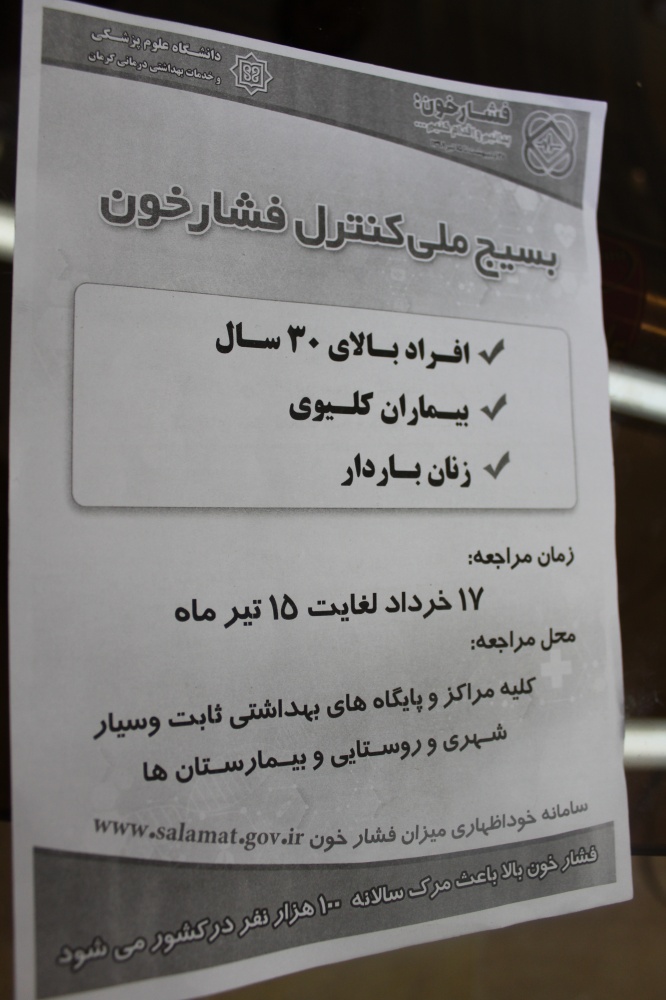 دانشگاه علوم پزشکی
و خدمات بهداشتی درمانی کرمان
فشارخون:
بدانیم و اقدام کنیم...
بسیج ملی کنترل فشارخون
افراد بالای ۳۰ سال
بیماران کلیوی
زنان باردار
زمان مراجعه:
۱۷ خرداد لغایت ۱۵ تیر ماه
محل مراجعه:
کلیه مراکز و پایگاه های بهداشتی ثابت وسیار
شهری و روستایی و بیمارستان ها
سامانه خوداظهاری میزان فشار خون www.salamat.gov.ir
فشار خون بالا باعث مرگ سالانه ۱۰۰ هزار نفر درکشور می شود